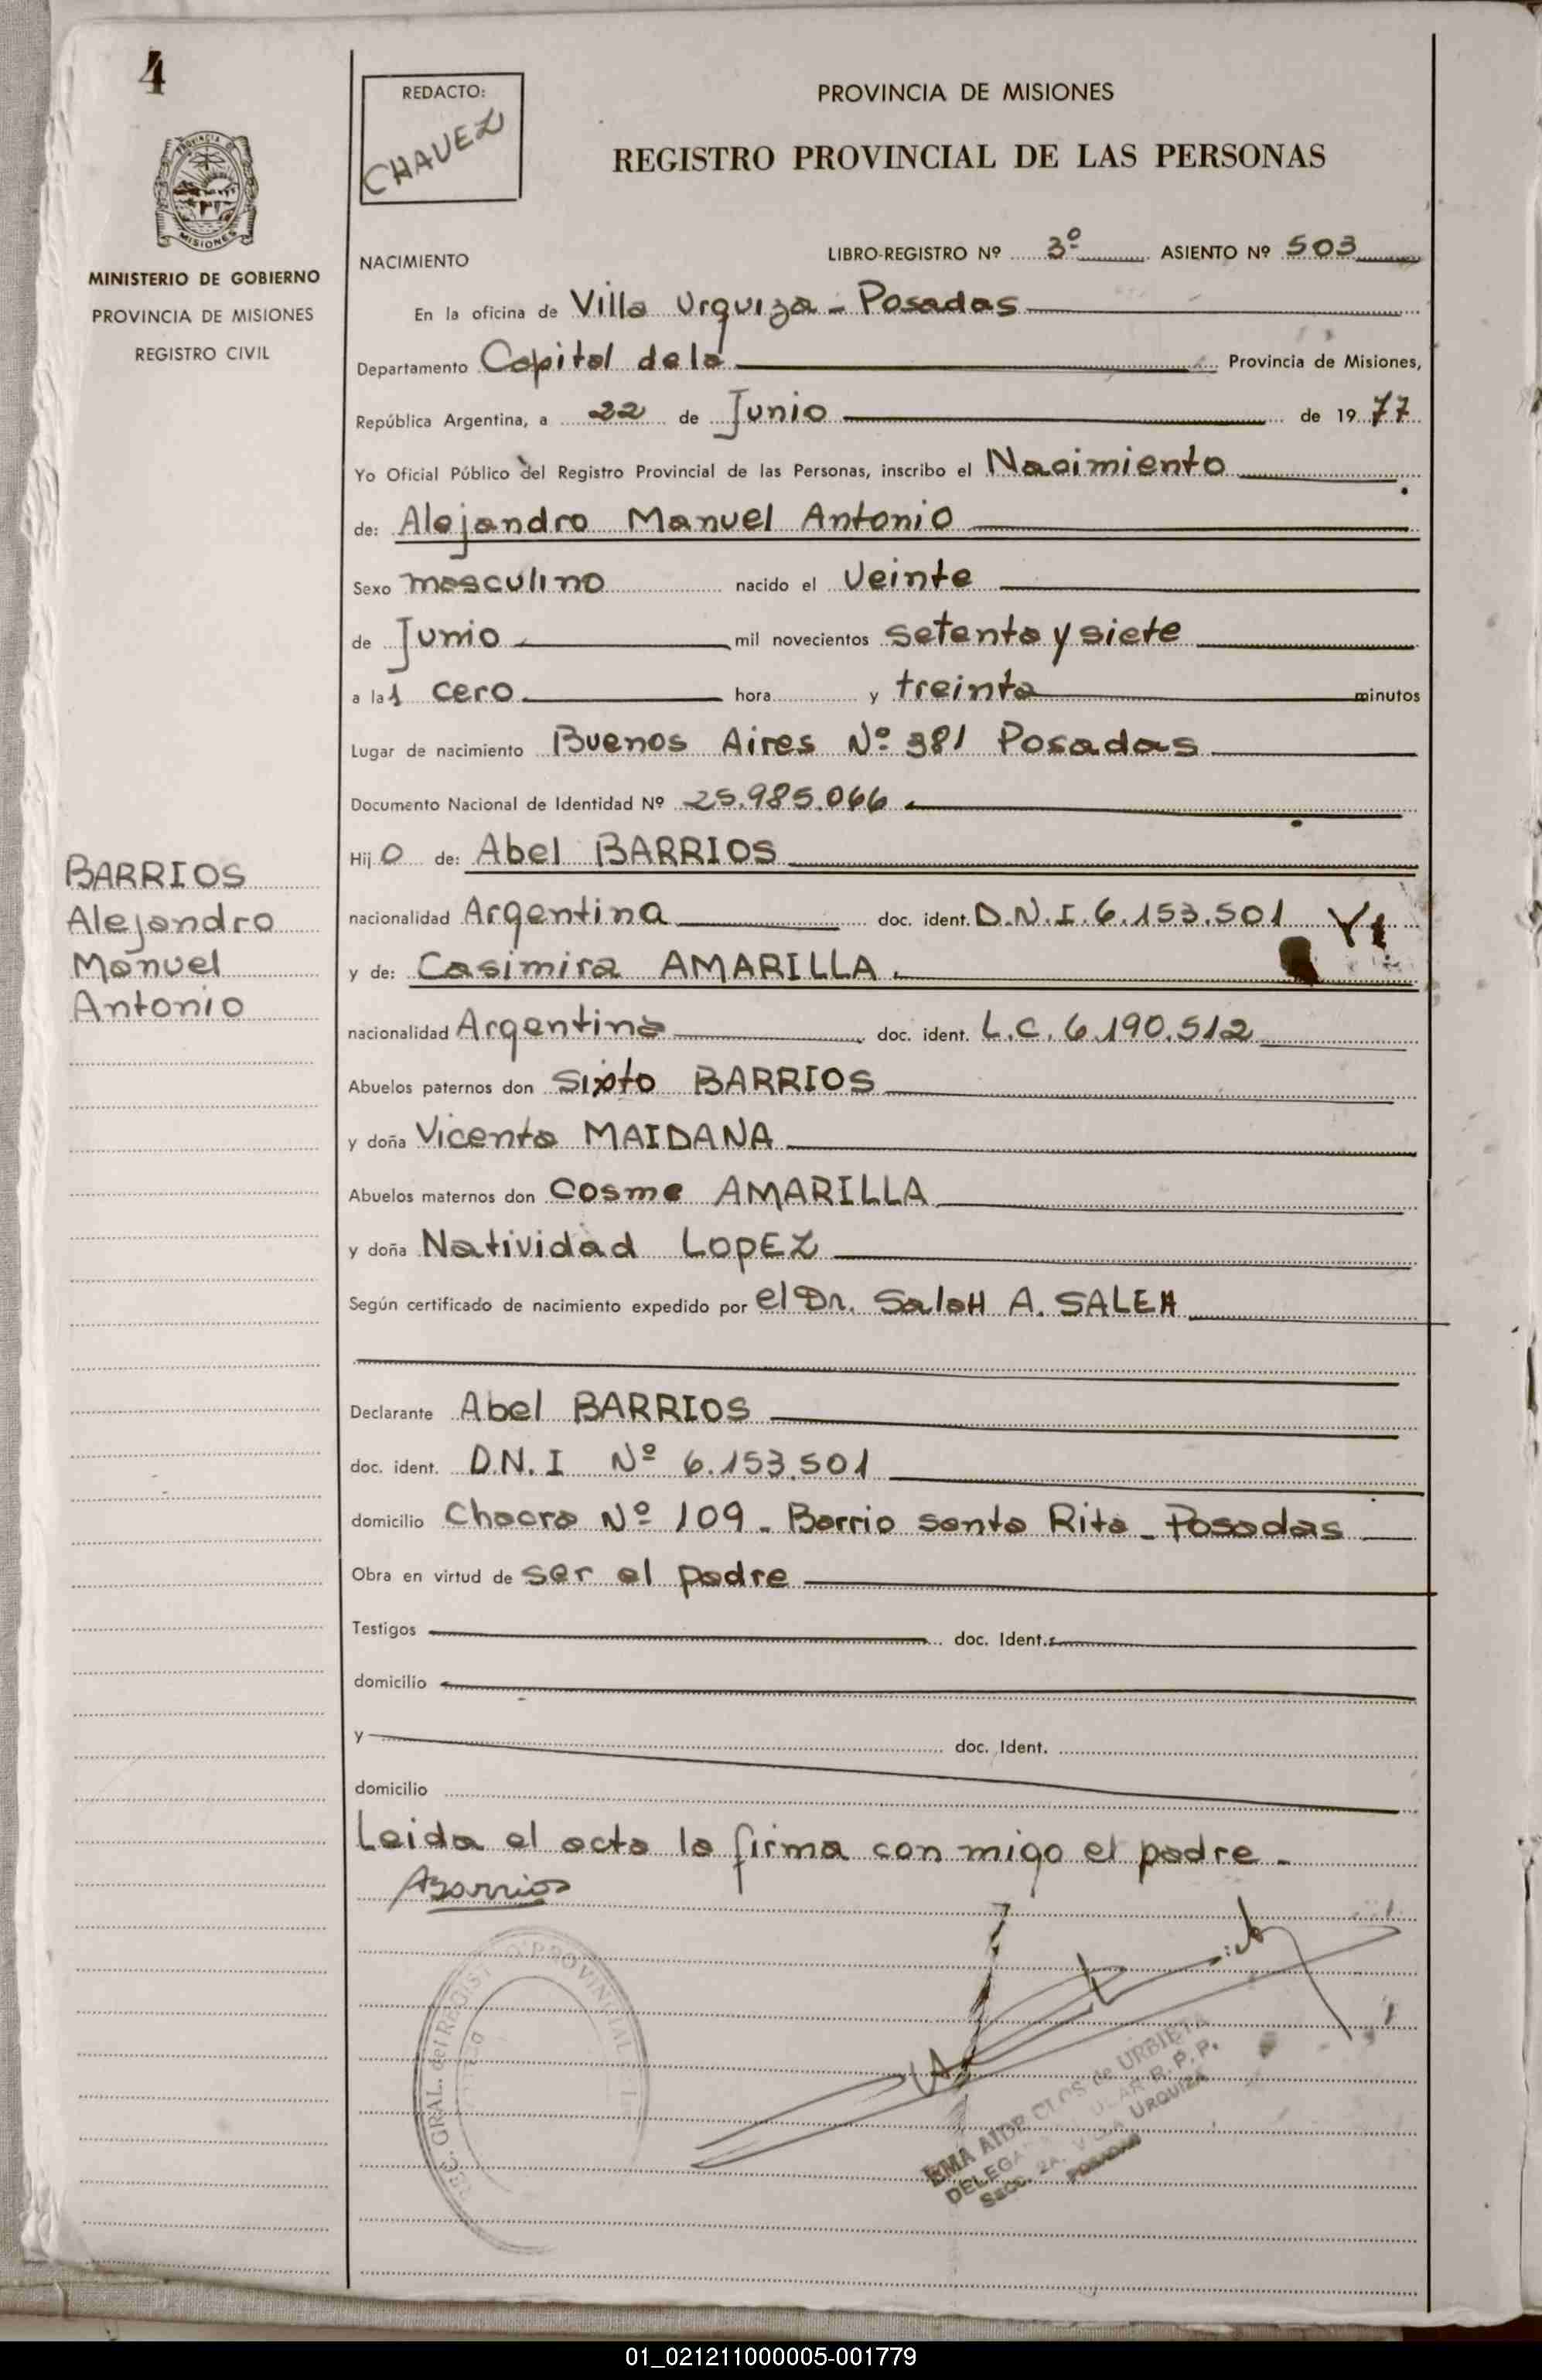 4
REDACTO:
CHAVEZ
PROVINCIA DE MISIONES
REGISTRO PROVINCIAL DE LAS PERSONAS
MISIONES
MINISTERIO DE GOBIERNO
PROVINCIA DE MISIONES
REGISTRO CIVIL
NACIMIENTO
LIBRO-REGISTRO Nº 3º ASIENTO Nº 503
En la oficina de Villa Urquiza - Posadas
Departamento Capital de la Provincia de Misiones,
República Argentina, a 22 de Junio de 1977
Yo Oficial Público del Registro Provincial de las Personas, inscribo el Nacimiento
de: Alejandro Manuel Antonio
Sexo masculino nacido el Veinte
de Junio mil novecientos setenta y siete
a las cero hora y treinta minutos
Lugar de nacimiento Buenos Aires Nº 381 Posadas
Documento Nacional de Identidad Nº 25.985.066
Hijo de: Abel BARRIOS
BARRIOS
Alejandro
Manuel
Antonio
nacionalidad Argentina doc. ident. D.N.I. 6.153.501
y de: Casimira AMARILLA.
nacionalidad Argentina doc. ident. L.C. 6.190.512
Abuelos paternos don Sixto BARRIOS
y doña Vicenta MAIDANA
Abuelos maternos don Cosme AMARILLA
y doña Natividad LOPEZ
Según certificado de nacimiento expedido por el Dr. SalaH A. SALEH
Declarante Abel BARRIOS
doc. ident. D.N.I Nº 6.153.501
domicilio Chacra Nº 109 - Barrio santa Rita - Posadas
Obra en virtud de ser el padre
Testigos doc. Ident.
domicilio
y doc. Ident.
domicilio
Leida el acta la firma con migo el padre -
ABarrios
de URBIETA
DELEGA R. P. P.
Secc. 2A. VILLA URQUIZA
POSADAS
01_021211000005-001779